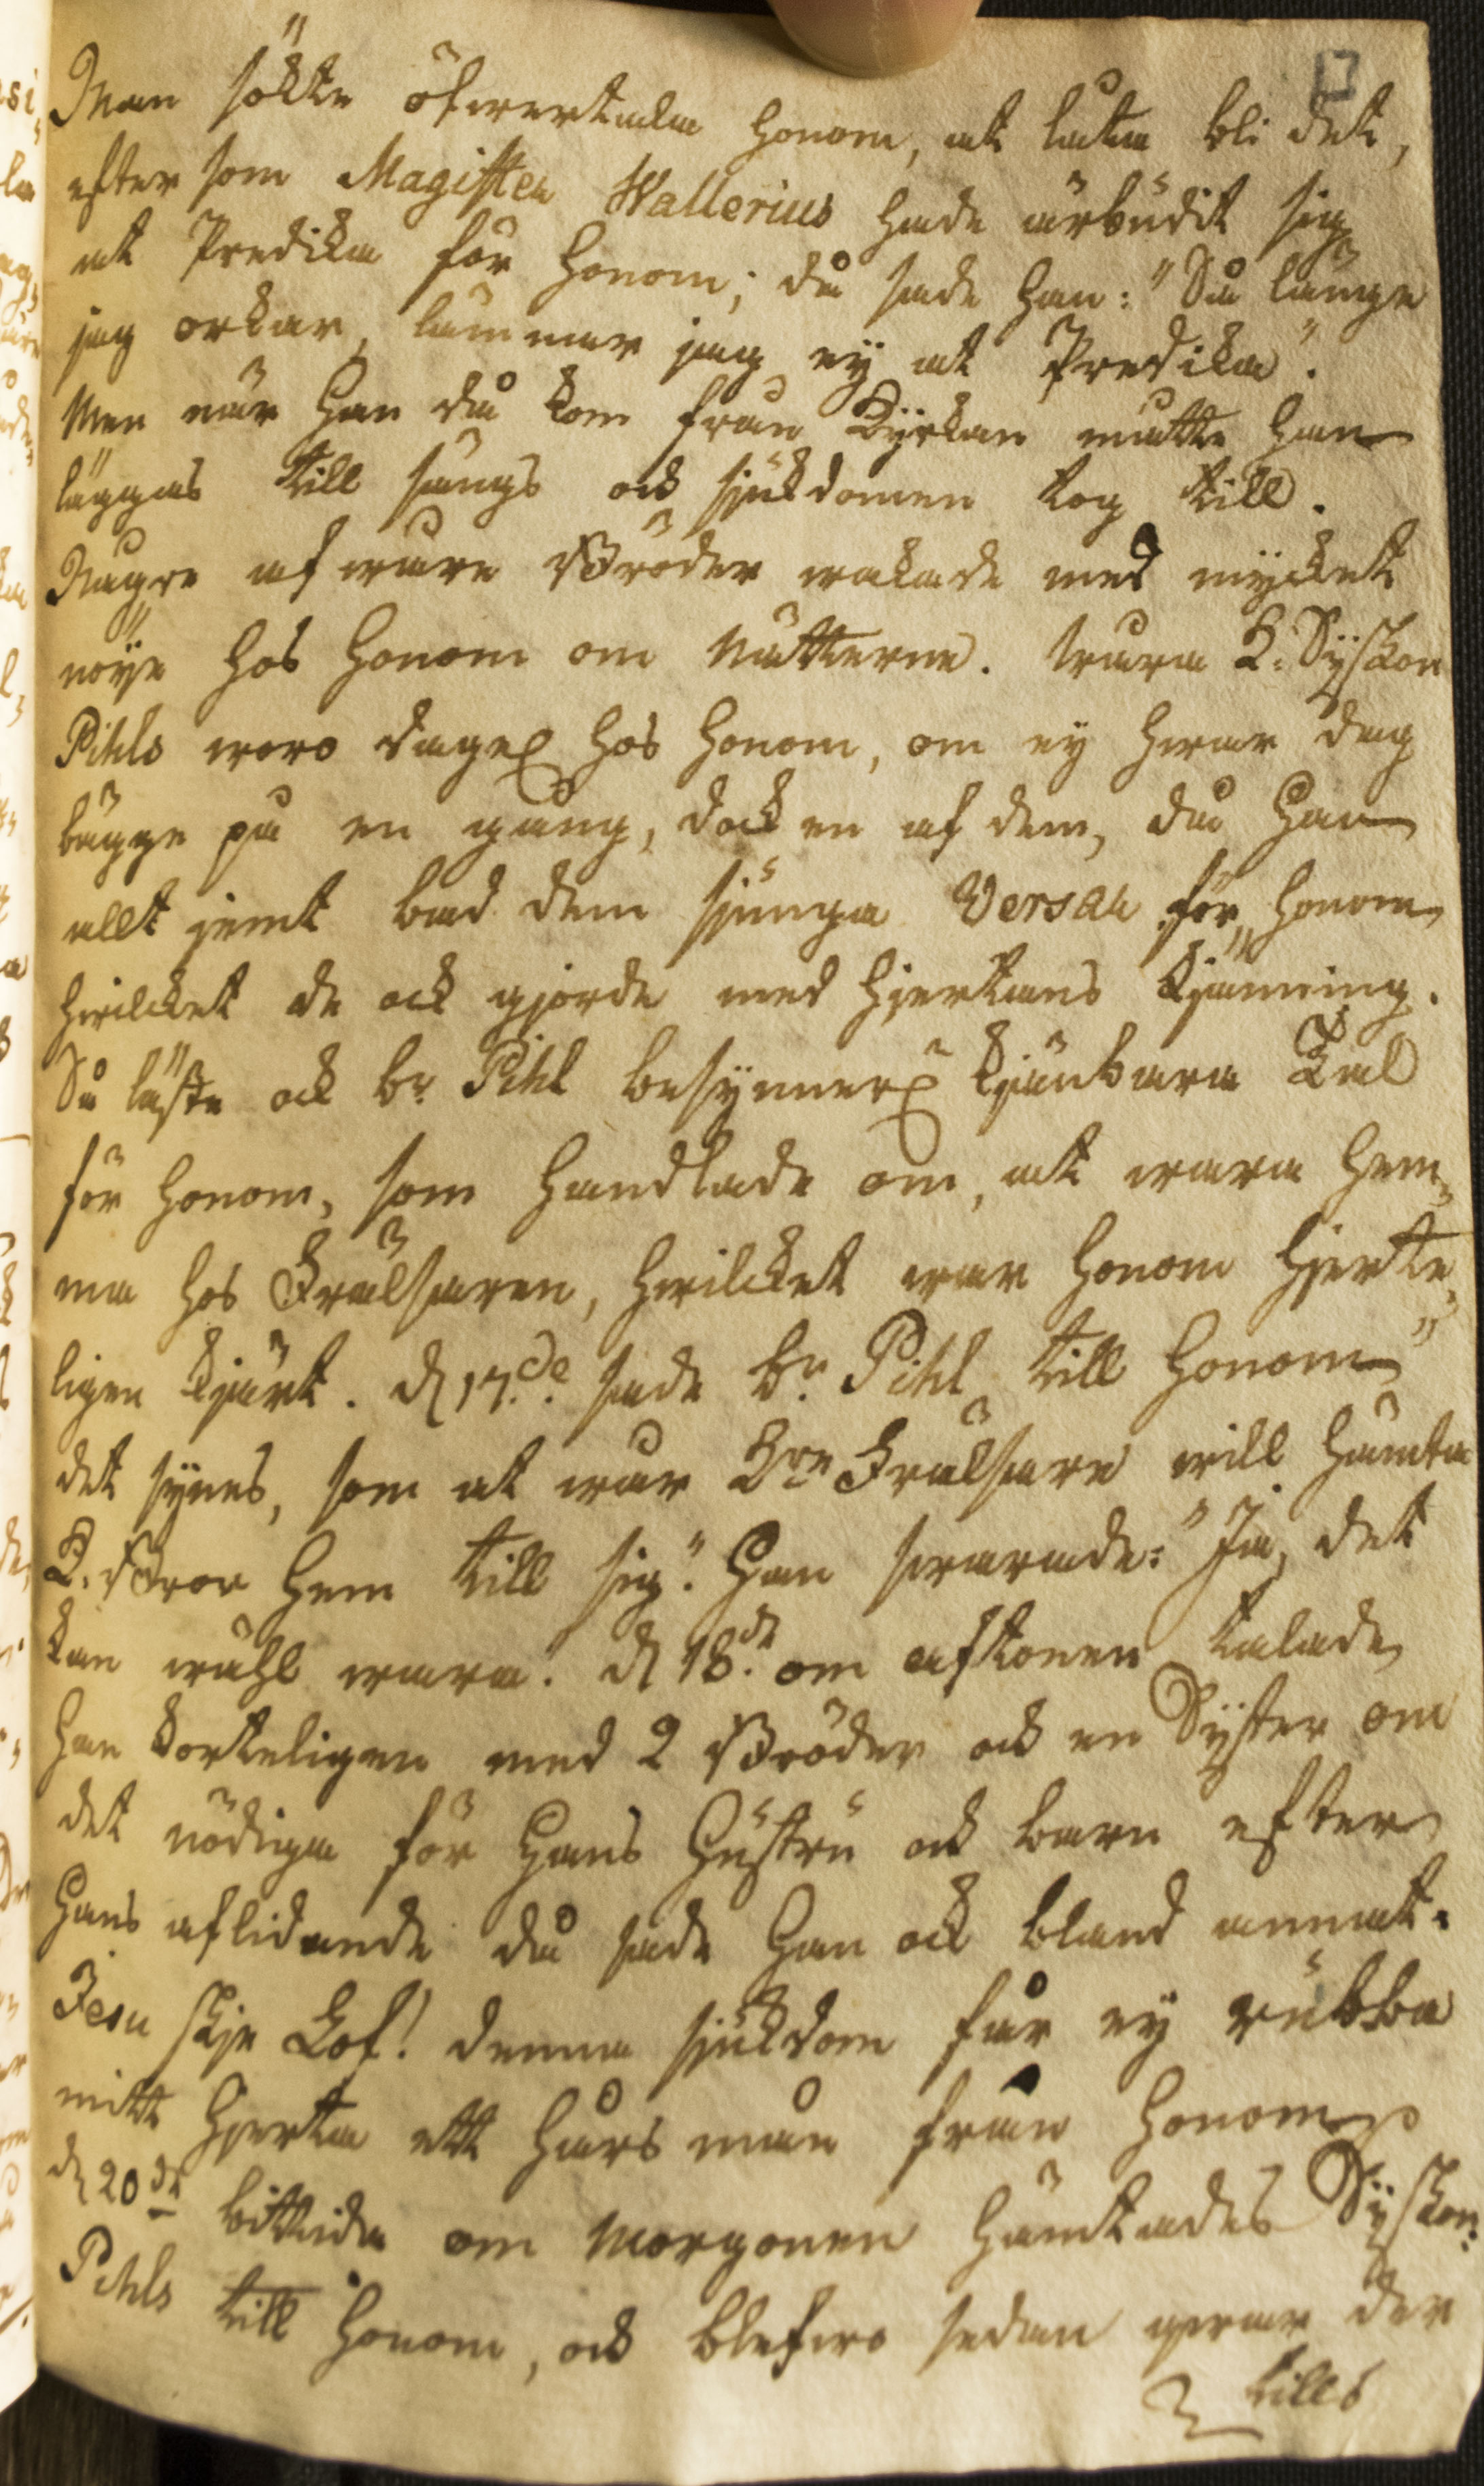 Man sökte öfvertala honom, at låta bli det,
efter som Magister Wallerius hade ärbudit sig
at Predika för honom; då sade han: "Så länge
jag orkar, lämnar jag ej at Predika".
Men när han då kom från Kyrkan måtte han
läggas till sängs ock sjukdomen tog till.
Någre af våre Bröder vakade med mycket
nöye hos honom om Nätterne. Wåra L: Syskon
Pihls voro dagel. hos honom, om ej hvar dag
bägge på en gång, dock en af dem, då han
allt jemt bad dem sjunga Verser för honom,
hvilcket de ock gjorde med hjertans kjänning.
Så läste ock br. Pihl besynnerl. kjänbara Tal
för honom, som handlade om, at vara hem,,
ma hos Frälsaren, hvilcket var honom hjerte,,
ligen kjärt. d 17.de sade br. Pihl till honom "
det synes, som at vår kre Frälsare vill hämta
L. Bror hem till sig". Han svarade: "Ja, det
kan wähl vara". d 18.de om aftonen talade
han korteligen med 2 Bröder ock en Syster om
det nödiga för Hans Hustru ock barn efter
Hans aflidande då sade Han ock bland annat:
Jesu skje Lof! denna sjukdom får ej rubba
mitt hjerta ett hårs mån från honom
d 20de bittida om Morgonen hämtades Syskon
Pihls till honom, ock blefvo sedan qvar der
tills